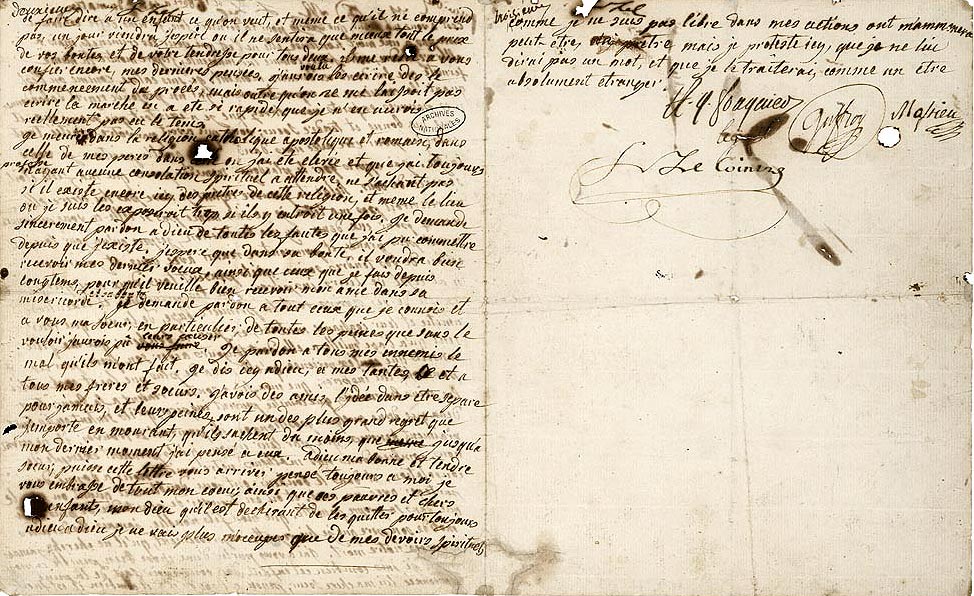 deuxieme
de faire dire a un enfant ce qu'on veut, et meme ce qu'il ne comprend
pas, un jour viendra j'espere ou il ne sentira que mieux tout le prix
de vos bontés et de votre tendresse pour tous deux. il me reste a vous
confier encore, mes dernieres pensées, j'aurois voulu les ecrire des le
commencement du procès, mais outre qu'on ne me laissoit pas
ecrire la marche en a eté si rapide, que je n'en aurois
reellement pas eu le tems.
je meurs dans la religion catholique apostolique et romaine, dans
celle de mes peres, dans ou j'ai été elevée et que j'ai toujours
professée
n'ayant aucune consolation spirituel a attendre, ne sachant pas
si il existe encore icy des prêtres de cette religion, et meme le lieu
ou je suis les exposeroit trop si ils y entroit une fois. je demande
sincerement pardon a dieu de toutes les fautes que j'ai pu commettre
depuis que j'existe. j'espere que dans sa bonté, il voudra bien
recevoir mes derniers voeux, ainsi que ceux que je fais depuis
longtems, pour qu'il veuille bien recevoir mon ame dans sa
misericorde et sa bonté. je demande pardon a tout ceux que je connois et
a vous ma soeur, en particulier, de toutes les peines que sans le
vouloir j'aurois pu leurs causer vous faire. je pardon a tous mes ennemis le
mal qu'ils m'ont fait. je dis icy adieu, a mes tantes et a
tous mes freres et soeurs. j'avois des amis, l'idée dans etre separé
pour jamais, et leurs peines, sont un des plus grand regret que
j'emporte en mourant, qu'ils sachent du moins, que jusqu'a
mon dernier moment j'ai pensé a eux. adieu ma bonne et tendre
soeur, puisse cette lettre vous arriver, pensé toujours a moi je
vous embrasse de tout mon coeur, ainsi que ces pauvres et chers
enfants, mon dieu qu'il est dechirant de les quitter pour toujours
adieu, adieu, je ne vais plus m'occuper que de mes devoirs spirituels
ARCHIVES NATIONALES
troisieme
comme je ne suis pas libre dans mes actions on m'amenera
peut-etre, un prêtre mais je proteste icy, que je ne lui
dirai pas un mot, et que je le traiterai comme un être
absolument etranger.
A. Q. Fouquier
le
Guffroy
Massieu
L Le Cointre